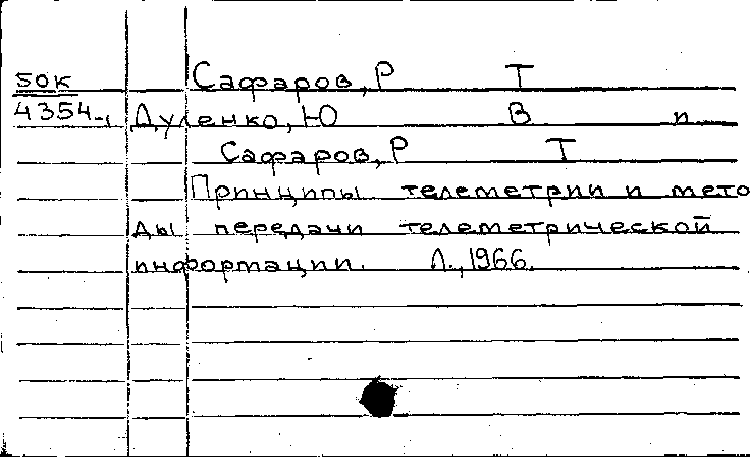 50К Сафаров, Р Т
4354-1 Дуленко, Ю В и
Сафаров, Р Т
Принципы телеметрии и мето
ды передачи телеметрической
информации. Л., 1966.